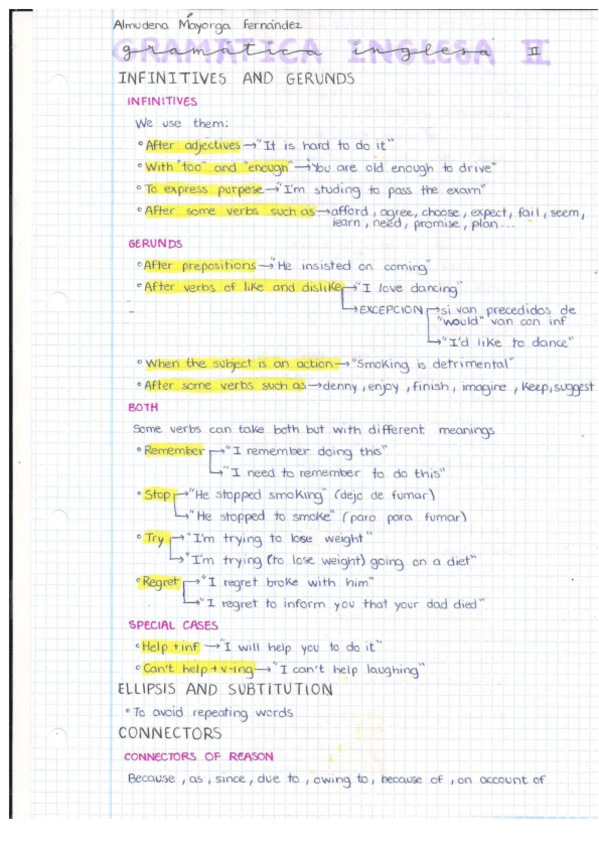 Almudena Mayorga Fernández
gramática inglesa II
GRAMÁTICA INGLESA
INFINITIVES AND GERUNDS
INFINITIVES
We use them:
° After adjectives → "It is hard to do it"
° With "too" and "enough" → "You are old enough to drive"
° To express purpese → "I'm studing to pass the exam"
° After some verbs such as → afford, agree, choose, expect, fail, seem,
learn, need, promise, plan...
GERUNDS
° After prepositions → "He insisted on coming"
° After verbs of like and dislike → "I love dancing"
→ EXCEPCION → si van precedidos de
"would" van con inf
→ "I'd like to dance"
° When the subject is an action → "Smoking is detrimental"
° After some verbs such as → denny, enjoy, finish, imagine, keep, suggest
BOTH
Some verbs can take both but with different meanings
° Remember → "I remember doing this"
→ "I need to remember to do this"
° Stop → "He stopped smoking" (dejo de fumar)
→ "He stopped to smoke" (paro para fumar)
° Try → "I'm trying to lose weight"
→ "I'm trying (to lose weight) going on a diet"
° Regret → "I regret broke with him"
→ "I regret to inform you that your dad died"
SPECIAL CASES
° Help + inf → "I will help you to do it"
° Can't help + v-ing → "I can't help laughing"
ELLIPSIS AND SUBTITUTION
° To avoid repeating words
CONNECTORS
CONNECTORS OF REASON
Because, as, since, due to, owing to, because of, on account of